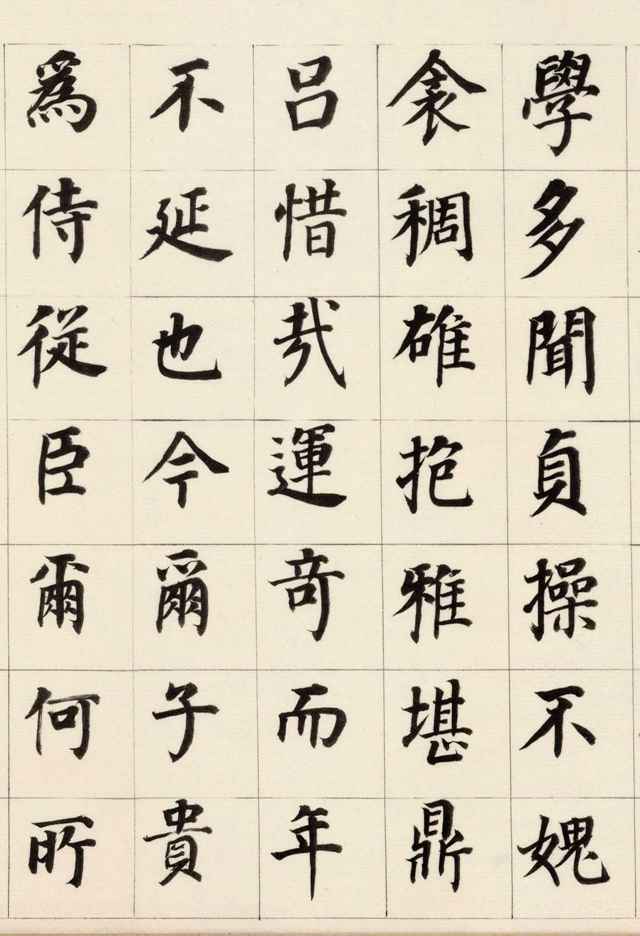 學多聞貞操不媿
衾稠雄抱雅堪鼎
吕惜哉運奇而年
不延也今爾子貴
爲侍從臣爾何所